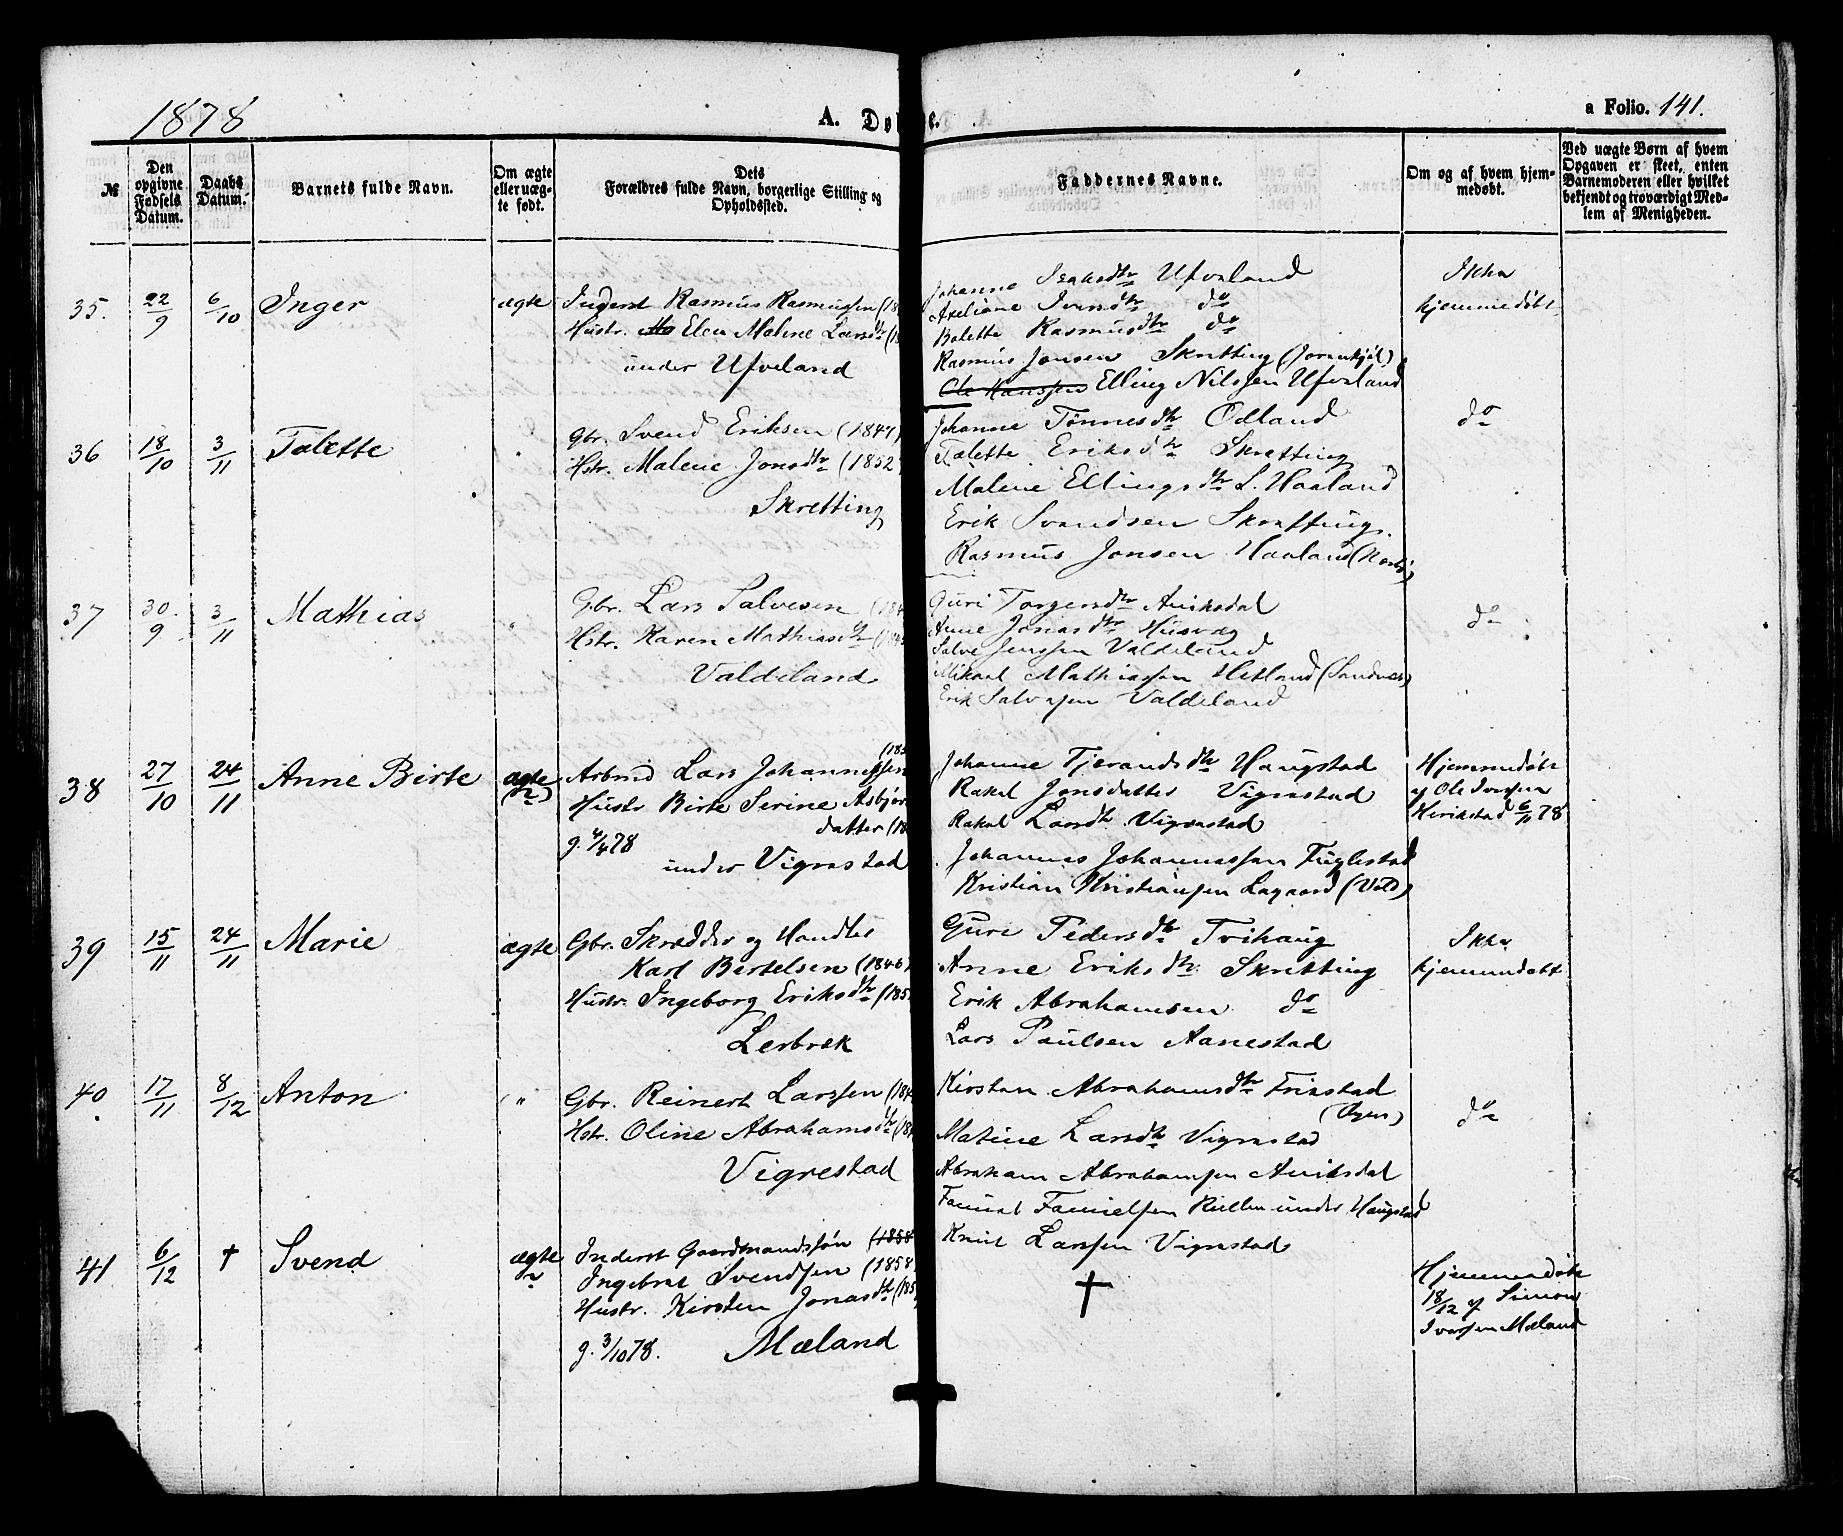 1878 A. Døb e. a Folio. 141.
№ Den opgivne Fødsels Datum. Daabs Datum. Barnets fulde Navn. Om ægte eller uægte født. Dets Forældres fulde Navn, borgerlige Stilling og Opholdssted. Faddernes Navne. Om og af hvem hjemmedøbt. Ved uægte Børn af hvem Opgaven er skeet, enten Barnemoderen eller hvilket bekjendt og troværdigt Medlem af Menigheden.
35. 22/9 6/10 Inger ægte
Inderst Rasmus Rasmussen (18
Hustr. Elen Malene Larsdtr (1
under Ufveland
Johanne Isaksdtr Ufveland
Axeliane Iversdtr do
Bolette Rasmusdtr do
Rasmus Jonsen Skretting (Jorenkjøl)
Ole Hanssen Elling Nilssen Ufveland
Ikke
hjemmedøbt
36 18/10 3/11 Talette "
Gbr. Svend Eriksen (1847)
Hstr. Malene Jonsdtr (1852
Skretting
Johanne Tønnesdtr Ødland
Talette Eriksdtr Skretting
Malene Ellingsdtr L. Haaland
Erik Svendsen Skretting.
Rasmus Jonsen Haaland
do
37 30/9 3/11 Mathias "
Gbr. Lars Salvesen (184
Hstr. Karen Mathiasdtr (184
Valdeland
Guri Torgersdtr Aniksdal
Anne Jonasdtr Husvæg
Salve Jenssen Valdeland
Mikael Mathiassen Hetland (Sandnæs)
Erik Salvesen Valdeland
do
38 27/10 24/11 Anne Birte ægte
(185
Arbmd Lars Johannessen
Hustr Birte Serine Asbjørns
datter (18
g. 4/4 78
under Vigrestad
Johanne Tjerandsdtr Haugstad
Rakel Jonsdatter Vigrestad
Rakel Larsdtr Vigrestad
Johannes Johannessen Fuglestad
Kristian Kristiansen Lagaard
Hjemmedøbt
af Ole Iversen
Herikstad 6/11 78
39 15/11 24/11 Marie ægte
Gbr. Skrædder og Handler
Karl Bertelsen (1846)
Hustr. Ingeborg Eriksdtr (185
Lerbrek
Guri Pedersdtr Tvihaug
Anne Eriksdtr Skretting
Erik Abrahamsen do
Lars Paulsen Aanestad
Ikke
hjemmedøbt
40. 17/11 8/12 Anton "
Gbr. Reinert Larssen (184
Hstr. Oline Abrahamsdtr (18
Vigrestad
Kirsten Abrahamsdtr Friestad
(Ogne)
Maline Larsdtr Vigrestad
Abraham Abrahamsen Aniksdal
under Haugstad
Knut Larssen Vigrestad
do
41 6/12 † Svend ægte
Inderst Gaardmandssøn (1858
Ingebret Svendsen (1858
Hustr. Kirsten Jonasdtr (185
g. 3/10 78. Mæland
†
Hjemmedøbt
18/12 af Simon
Iversen Mæland